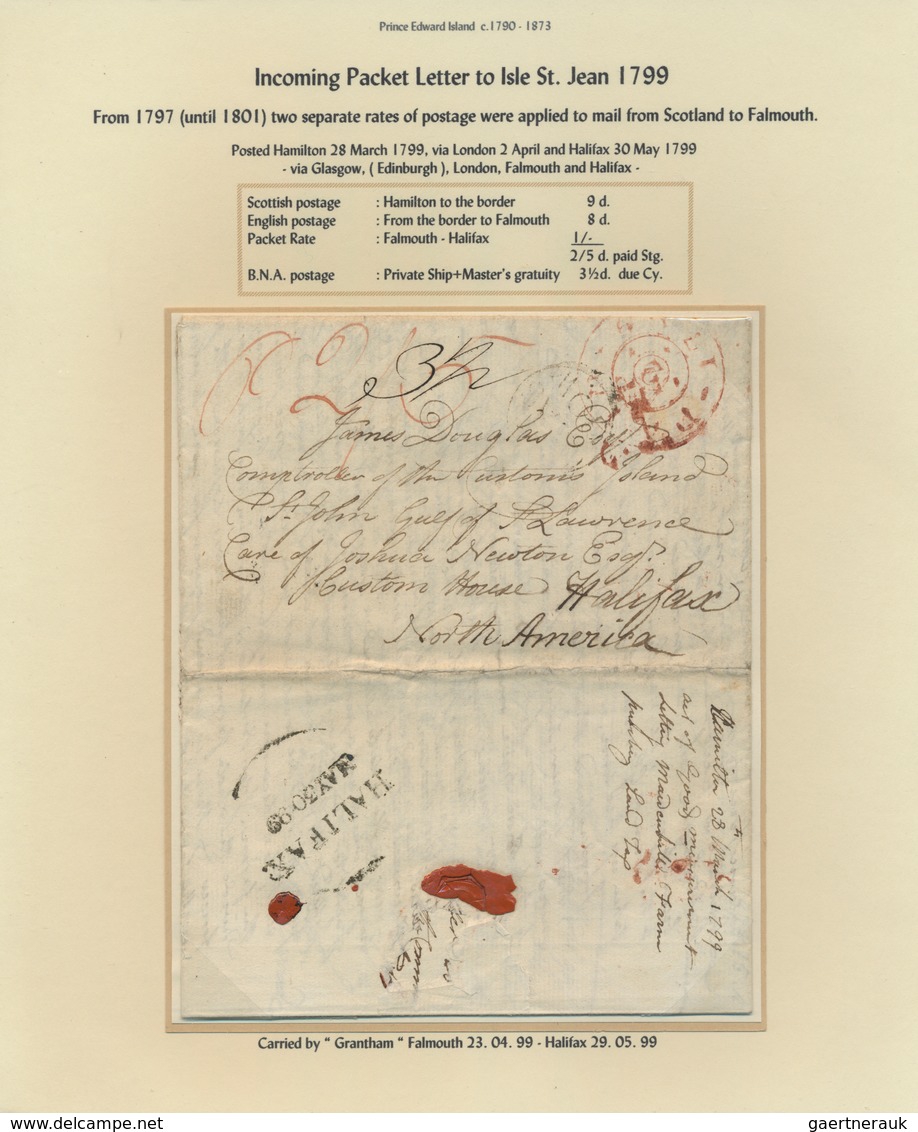 Prince Edward Island c.1790 - 1873
Incoming Packet Letter to Isle St. Jean 1799
From 1797 (until 1801) two separate rates of postage were applied to mail from Scotland to Falmouth.
Posted Hamilton 28 March 1799, via London 2 April and Halifax 30 May 1799
- via Glasgow, ( Edinburgh ), London, Falmouth and Halifax -
Scottish postage : Hamilton to the border 9 d.
English postage : From the border to Falmouth 8 d.
Packet Rate : Falmouth - Halifax 1/-
2/5 d. paid Stg.
B.N.A. postage : Private Ship+Master's gratuity 3½d. due Cy.
2/5
3½
James Douglas Esqr
Comptroller of the Customs Island
St John Gulf of St Lawrence
Care of Joshua Newton Esqr.
Custom House Halifax
North America
HALIFAX
MAY 30 99
Hamilton 28th March 1799
act of Good
letting Maidenhill Farm
Land Tax
Carried by " Grantham " Falmouth 23. 04. 99 - Halifax 29. 05. 99
gaertnerauk